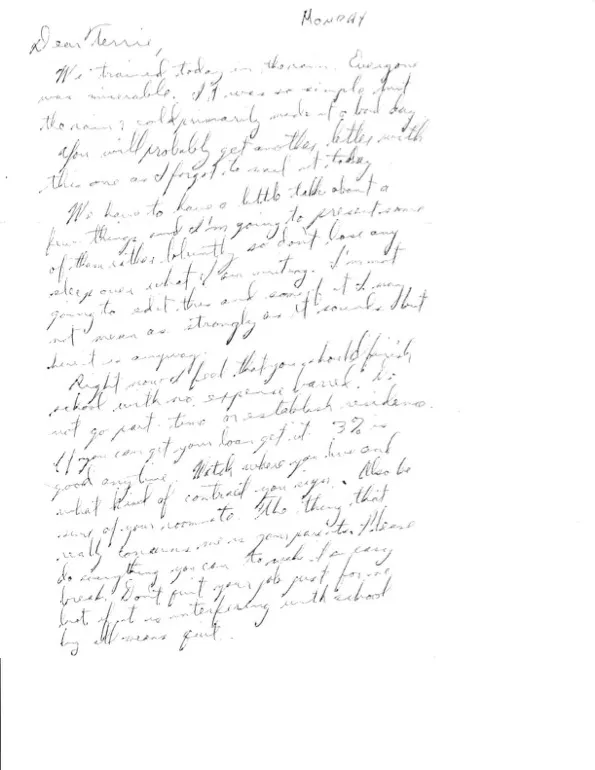 MONDAY
Dear Terrie,
We trained today in the rain. Everyone
was miserable. It was so simple but
the rain & cold primarily made it a bad day.
You will probably get another letter with
this one as I forgot to mail it today.
We have to have a little talk about a
few things and I'm going to present some
of them rather bluntly so don't lose any
sleep over what I am writing. I'm not
going to edit this and some of it I may
not mean as strongly as it sounds but
here it is anyway.
Right now I feel that you should finish
school with no expense barred. Do
not go part time or establish residence.
If you can get your loan get it. 3% is
good anytime. Watch where you live and
what kind of contract you sign. Also be
sure of your roommate. The thing that
really concerns me is your parents. Please
do everything you can to make it a easy
break. Don't quit your job just for me
but if it is interfering with school
by all means quit.